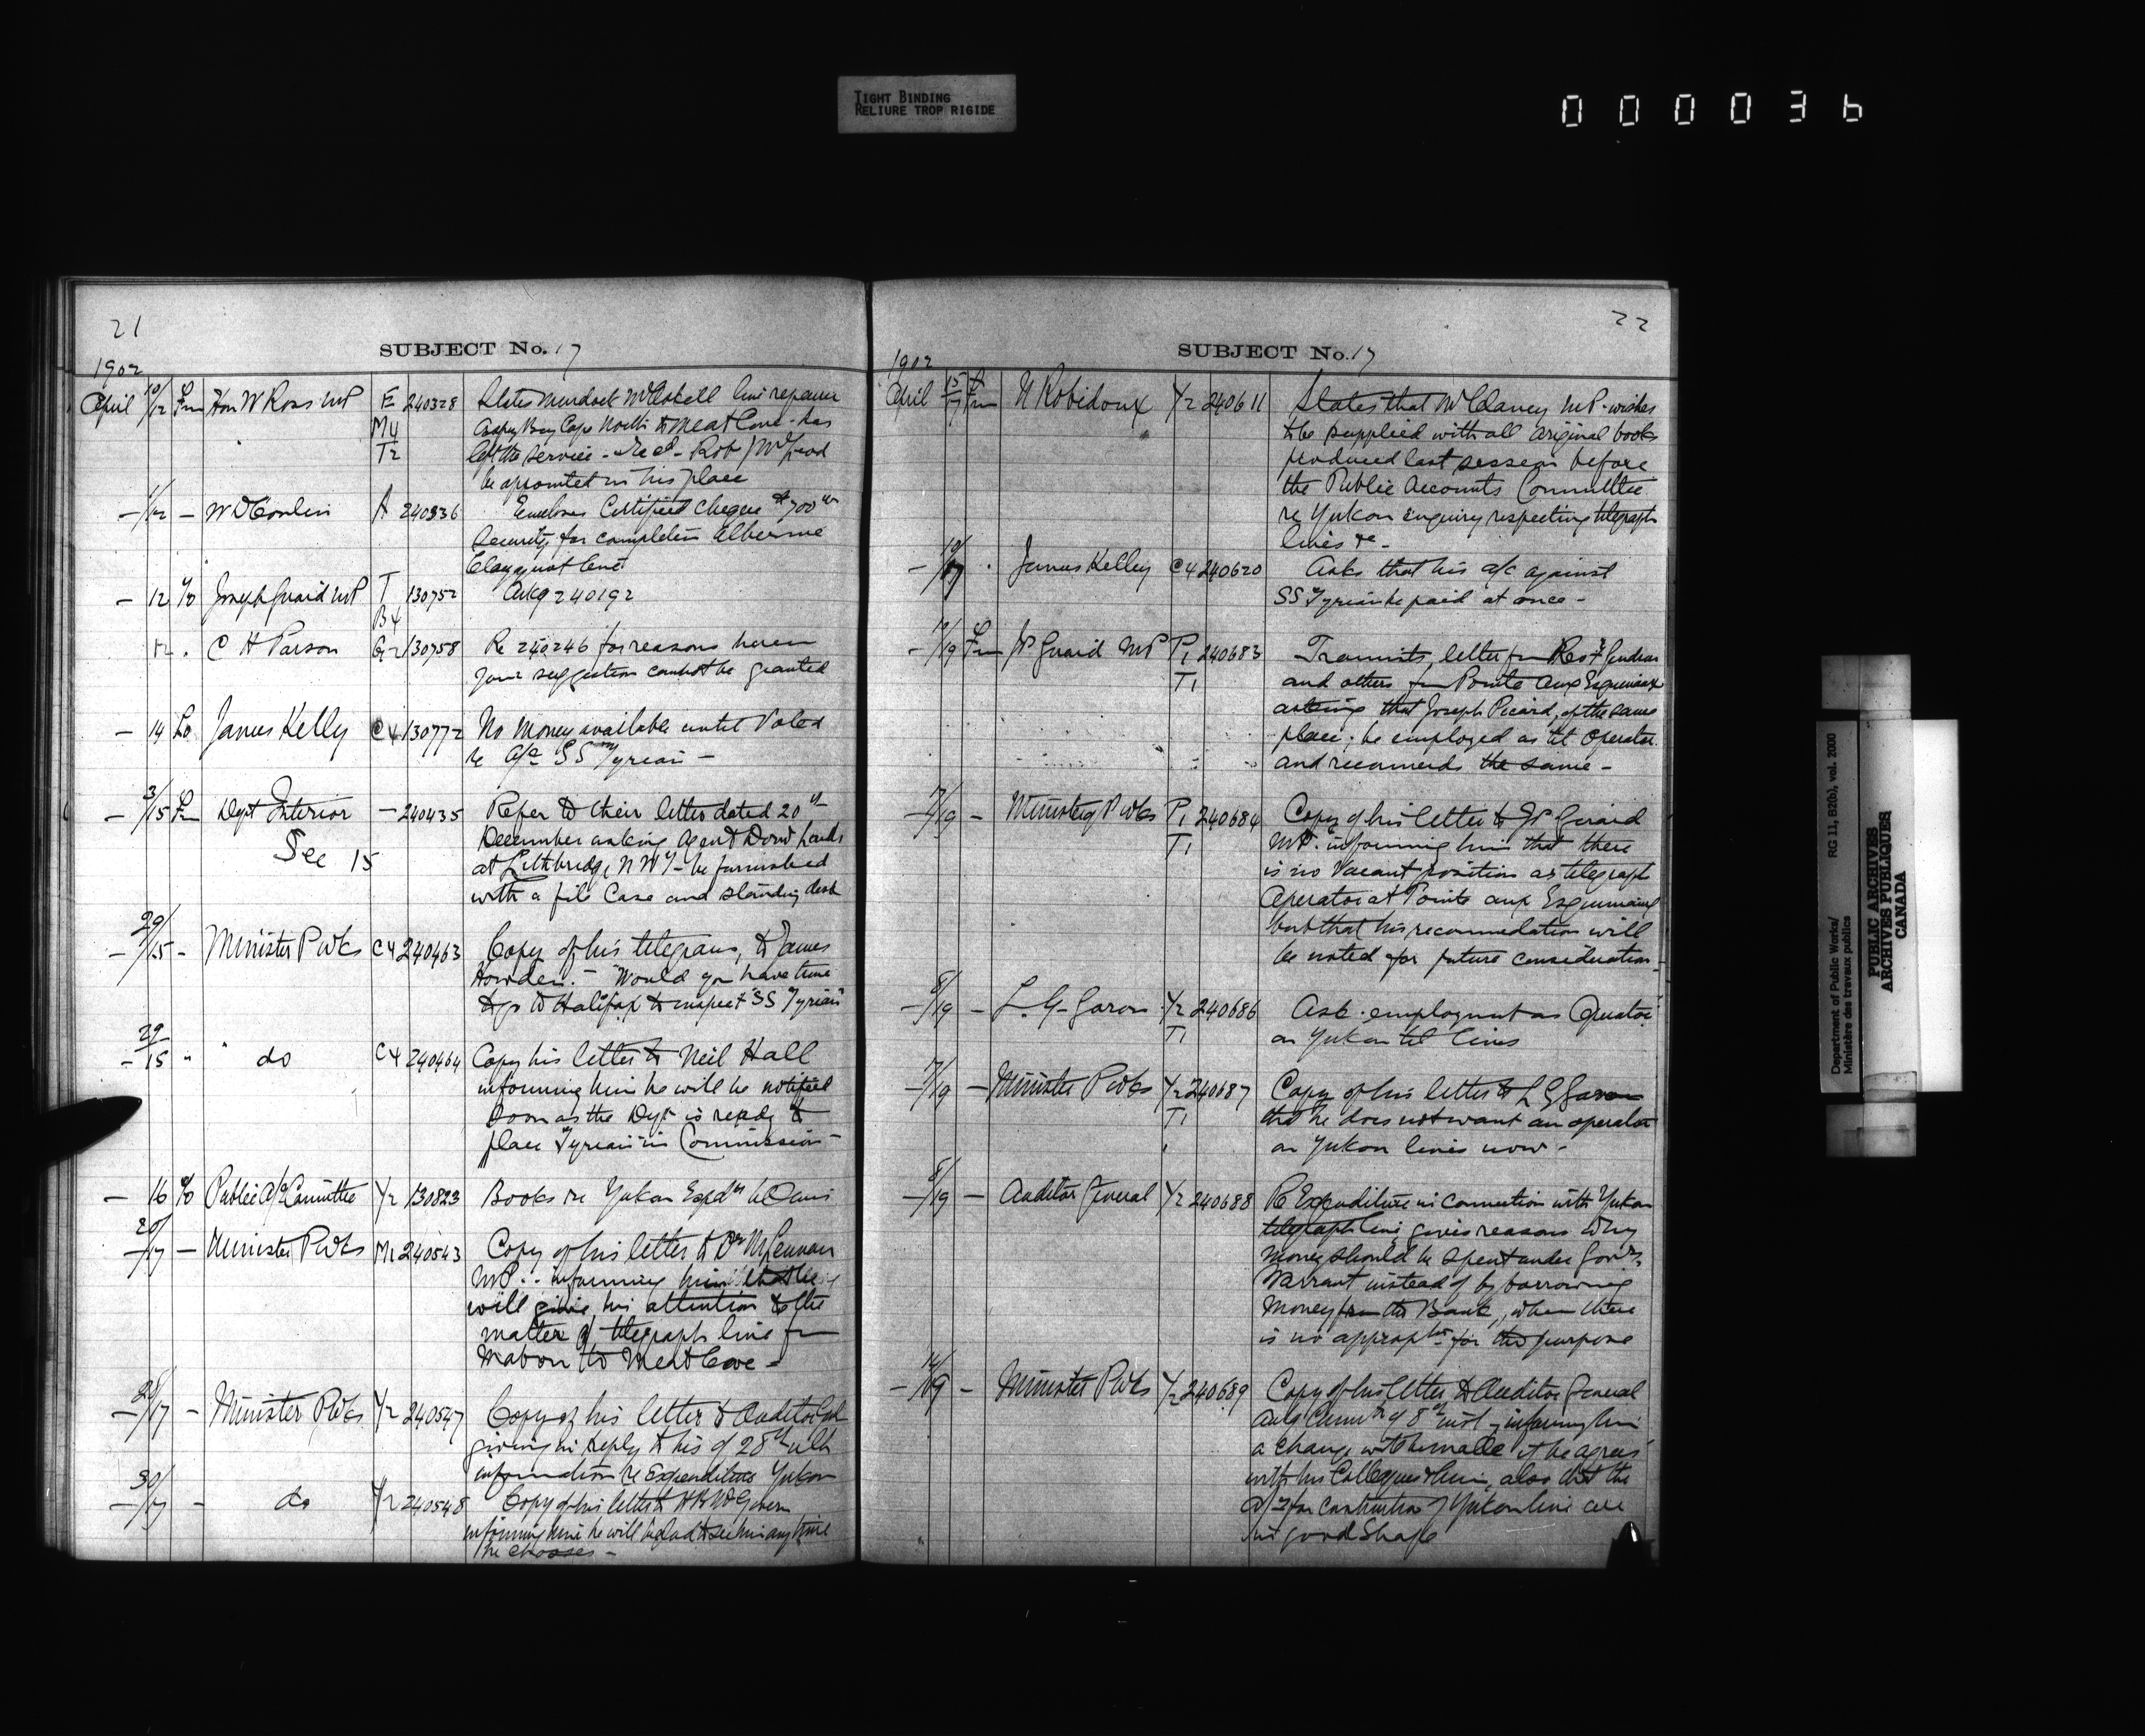 TIGHT BINDING
RELIURE TROP RIGIDE
000036
21
SUBJECT No. 17
1902
April 10/12 Fm Hon W Ross MP E 240328 States Murdock McAskell line repairer
M4 Aspy Bay Cape North to Meat Cove - has
T2 left the service - Rob
be appointed in his place
- 1/12 - W D Conlin A 240336 Encloses Certified cheque $700
Security for completion Alberni
Clayoquot line
- 12 To Joseph Guaid MP T 130752 Ackg 240192
B4
12 . C H Parson G2 130758 Re 240246 for reasons
your suggestion cannot be granted
- 14 To James Kelly C4 130772 No money available until Voted
re a/c SS Tyrian -
- 3/15 Fm Dept Interior - 240435 Refer to their letter dated 20th
See 15 December asking Agent Dom Lands
at Lethbridge NWT - be furnished
with a file Case and standing desk
- 29/15 - Minister P Wks C4 240463 Copy of his telegram, to James
Howden. - "Would you have time
to go to Halifax to inspect "SS Tyrian"
- 29/15 " " do C4 240464 Copy his letter to Neil Hall
informing him he will be notified
soon as the Dept is ready to
place "Tyrian" in Commission -
- 16 To Public A/c Committee Y2 130823 Books re Yukon Expd
- 20/17 - Minister P Wks M1 240543 Copy of his letter to Dr McLennan
MP.. informing him that he
will give his attention to the
matter of telegraph line fm
Mabou to Meat Cove -
- 28/17 - Minister P Wks Y2 240547 Copy of his letter to Auditor Genl
giving in reply to his of 28th ulto
information re Expenditure Yukon
- 30/17 - do Y2 240548 Copy of his letter to
informing him he will be glad to see him any time
he chooses -
22
SUBJECT No. 17
1902
April 15/17 Fm N Robidoux Y2 240611 States that Mr Clancy MP. wishes
to be supplied with all original books
produced last session before
the Public Accounts Committee
re Yukon enquiry respecting telegraph
lines &c -
- 10/17 . James Kelley C4 240620 Asks that his a/c against
SS Tyrian be paid at once -
- 17/19 Fm JP Guaid MP P1 240683 Transmits, letter fm Revd Gendron
T1 and others fm Pointe aux Esquimaux
asking that Joseph Picard, of the same
place, be employed as tel. operator
and recommends the same -
- 17/19 - Minister P Wks P1 240684 Copy of his letter to JP Guaid
T1 MP. informing him that there
is no vacant position as telegraph
Operator at Pointe aux Esquimaux
but that his recommendation will
be noted for future consideration -
- 8/19 - L. G. Garon Y2 240686 Ask. employment as Operator
T1 on Yukon tel lines
- 17/19 - Minister P Wks Y2 240687 Copy of his letter to L G Garon
T1 that he does not want an operator
on Yukon lines now -
- 8/19 - Auditor General Y2 240688 Re Expenditure in connection with Yukon
telegraph line, gives reasons why
money should be spent under Govrs
Warrant instead of by borrowing
money from the Bank, when there
is no appropn for the purpose
- 14/19 - Minister P Wks Y2 240689 Copy of his letter to Auditor General
of 8th inst - informing him
a change will be made if he agrees
with his Collegues also that the
a/cs for construction of Yukon line are
in good Shape
Department of Public Works/ RG 11, B2(b), vol. 2000
Ministère des travaux publics
PUBLIC ARCHIVES
ARCHIVES PUBLIQUES
CANADA